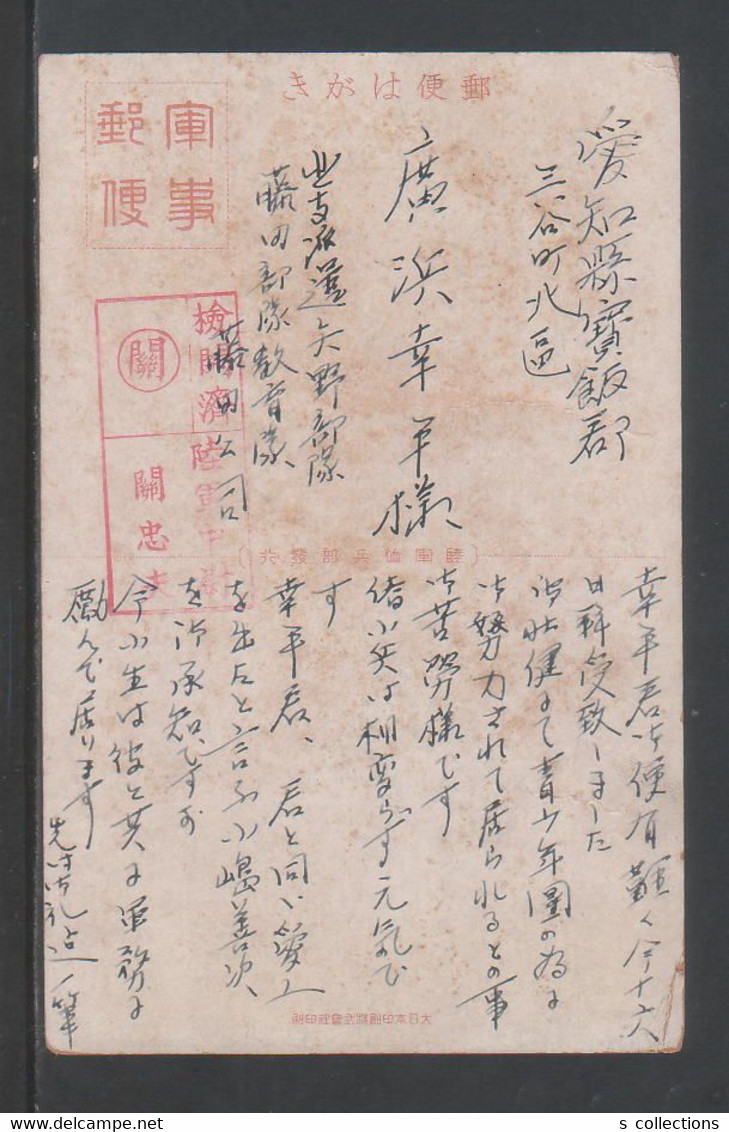 郵便はがき
軍事郵便
愛知縣寶飯郡
三谷町北區
廣浜幸平様
北支派遣矢野部隊
藤田部隊教育隊
藤田公司
檢閲濟
陸軍中尉
關
關忠夫
(陸軍恤兵部發行)
幸平君御便有難く今十六
日拝受致しました
御壮健にて青少年團の為に
御努力されて居られるとの事
御苦労様です
借小生は相変らず元気で
す
幸平君、君と同じ愛工
を出たと言ふ小嶋善次
を御承知ですか
今小生は彼と共に軍務に
励んで居ります
先は御礼迄一筆
大日本印刷株式會社印刷
s collections